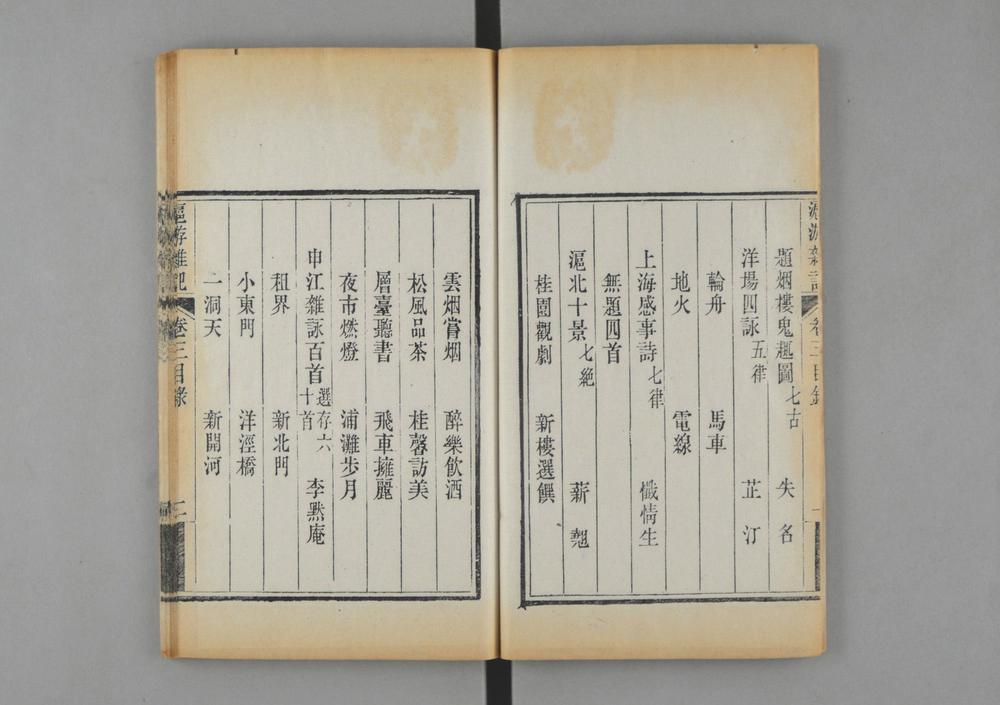 滬游雜記 卷三目錄 一
題烟樓鬼趣圖 七古 失名
洋場四詠 五律 芷汀
輪舟 馬車
地火 電線
上海感事詩 七律 懺情生
無題四首
滬北十景 七絶 薪翹
桂園觀劇 新樓選饌
雲烟嘗烟 醉樂飲酒
松風品茶 桂馨訪美
層臺聽書 飛車擁麗
夜市燃燈 浦灘步月
申江雜詠百首 選存六十首 李默庵
租界 新北門
小東門 洋涇橋
一洞天 新開河
滬游雜記 卷三目錄 二